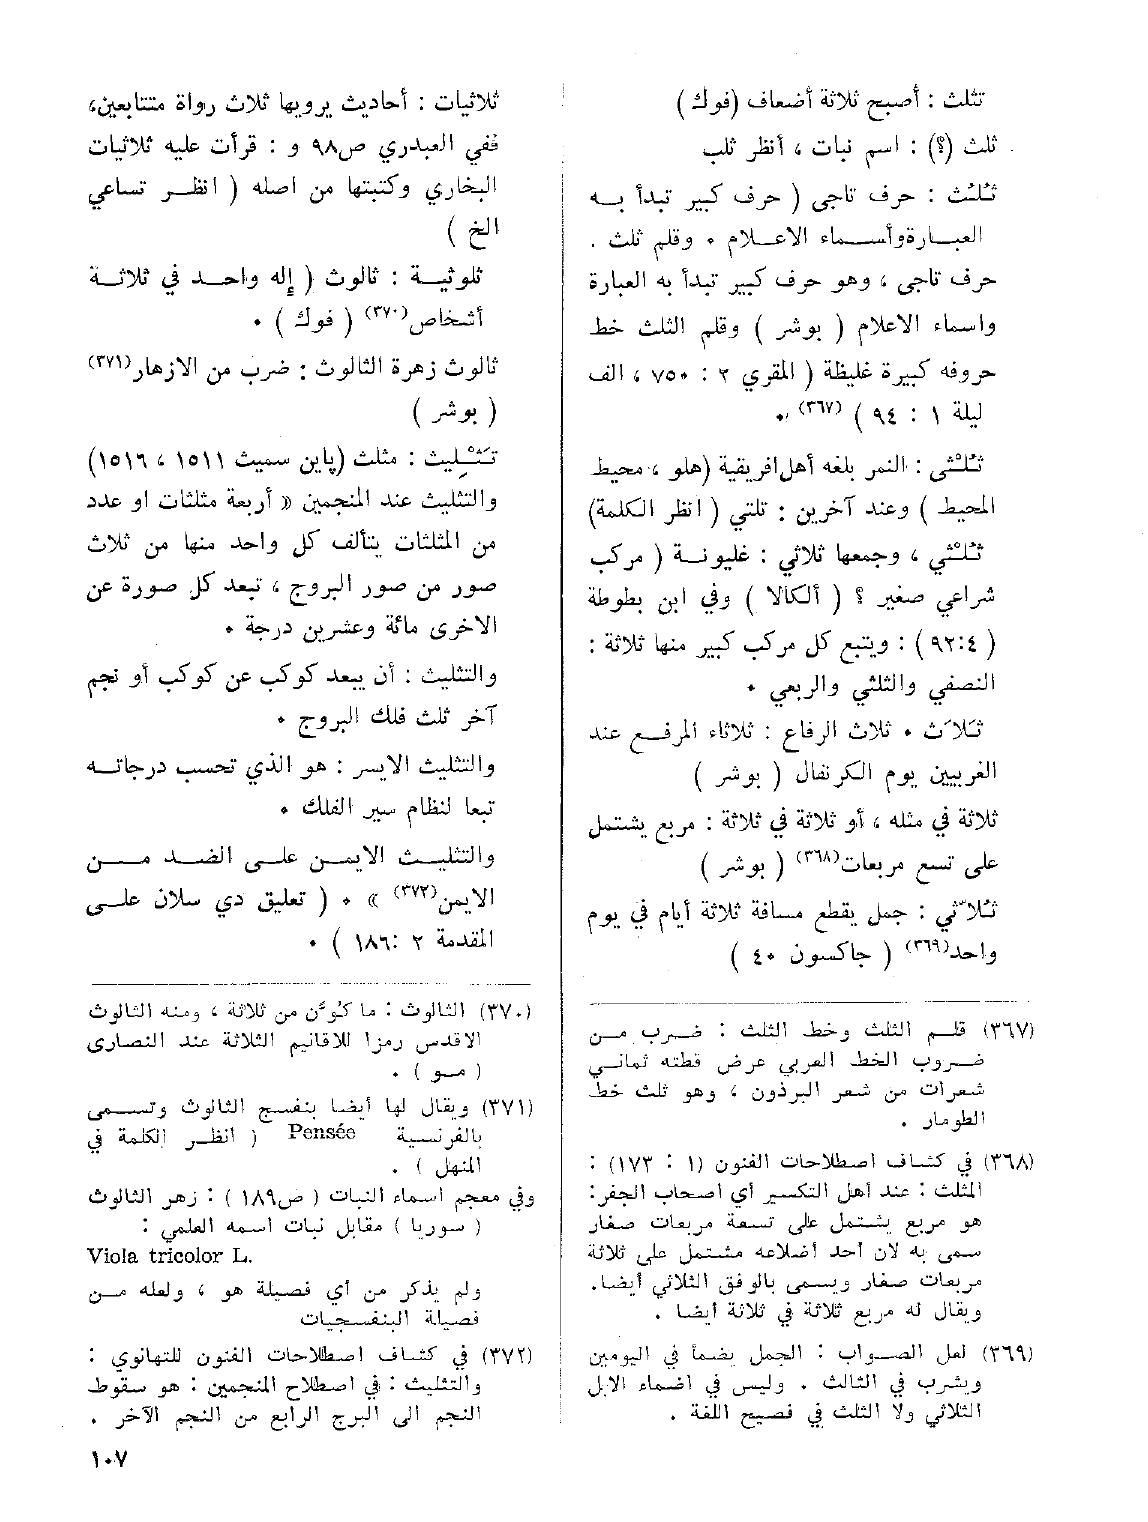 تثلث : أصبح ثلاثة أضعاف (فوك)
ثلث (؟) : اسم نبات ، أنظر ثلب
ثُلُث : حرف تاجي ( حرف كبير تبدأ به
العبارة وأسماء الاعلام . وقلم ثلث .
حرف تاجي ، وهو حرف كبير تبدأ به العبارة
واسماء الاعلام ( بوشر ) وقلم الثلث خط
حروفه كبيرة غليظة ( المقري ٢ : ٧٥٠ ، الف
ليلة ١ : ٩٤ ) (٣٦٧) .
ثُلُثي : النمر بلغه أهل افريقية (هلو ، محيط
المحيط ) وعند آخرين : تلتي ( انظر الكلمة)
ثُلُثي ، وجمعها ثلاثي : غليونة ( مركب
شراعي صغير ؟ ( ألكالا ) وفي ابن بطوطة
( ٩٢:٤ ) : ويتبع كل مركب كبير منها ثلاثة :
النصفي والثلثي والربعي .
ثَلاَث . ثلاث الرفاع : ثلاثاء المرفع عند
الغربيين يوم الكرنفال ( بوشر )
ثلاثة في مثله ، أو ثلاثة في ثلاثة : مربع يشتمل
على تسع مربعات(٣٦٨) ( بوشر )
ثلاثي : جمل يقطع مسافة ثلاثة أيام في يوم
واحد(٣٦٩) ( جاكسون ٤٠ )
(٣٦٧) قلم الثلث وخط الثلث : ضرب من
ضروب الخط العربي عرض قطته ثماني
شعرات من شعر البرذون ، وهو ثلث خط
الطومار .
(٣٦٨) في كشاف اصطلاحات الفنون (١ : ١٧٣) :
المثلث : عند أهل التكسير أي اصحاب الجفر:
هو مربع يشتمل على تسعة مربعات صغار
سمى به لان أحد أضلاعه مشتمل على ثلاثة
مربعات صغار ويسمى بالوفق الثلاثي أيضا.
ويقال له مربع ثلاثة في ثلاثة أيضا .
(٣٦٩) لعل الصواب : الجمل يضمأ في اليومين
ويشرب في الثالث . وليس في اضماء الابل
الثلاثي ولا الثلث في فصيح اللغة .
ثلاثيات : أحاديث يرويها ثلاث رواة متتابعين،
ففي العبدري ص٩٨ و : قرأت عليه ثلاثيات
البخاري وكتبتها من اصله ( انظر تساعي
الخ )
ثلوثية : ثالوث ( إله واحد في ثلاثة
أشخاص(٣٧٠) ( فوك ) .
ثالوث زهرة الثالوث : ضرب من الازهار(٣٧١)
( بوشر )
تَثْلِيث : مثلث (پاين سميث ١٥١١ ، ١٥١٦)
والتثليث عند المنجمين « أربعة مثلثات او عدد
من المثلثات يتألف كل واحد منها من ثلاث
صور من صور البروج ، تبعد كل صورة عن
الاخرى مائة وعشرين درجة .
والتثليث : أن يبعد كوكب عن كوكب أو نجم
آخر ثلث فلك البروج .
والتثليث الايسر : هو الذي تحسب درجاته
تبعا لنظام سير الفلك .
والتثليث الايمن على الضد من
الايمن(٣٧٢) » . ( تعليق دي سلان على
المقدمة ٢ :١٨٦ ) .
(٣٧٠) الثالوث : ما كُوِّن من ثلاثة ، ومنه الثالوث
الاقدس رمزا للاقانيم الثلاثة عند النصارى
( مو ) .
(٣٧١) ويقال لها أيضا بنفسج الثالوث وتسمى
بالفرنسية Pensée ( انظر الكلمة في
المنهل ) .
وفي معجم اسماء النبات ( ص١٨٩ ) : زهر الثالوث
( سوريا ) مقابل نبات اسمه العلمي :
Viola tricolor L.
ولم يذكر من أي فصيلة هو ، ولعله من
فصيلة البنفسجيات
(٣٧٢) في كشاف اصطلاحات الفنون للتهانوي :
والتثليث : في اصطلاح المنجمين : هو سقوط
النجم الى البرج الرابع من النجم الآخر .
١٠٧